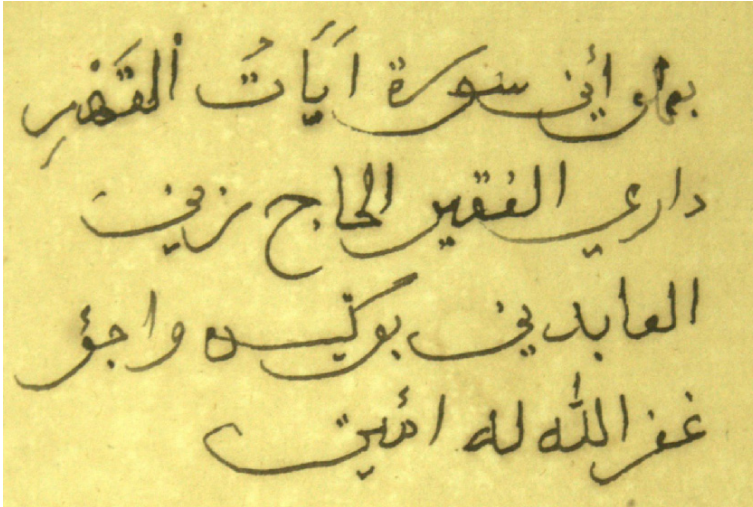 أني سورة اَيَاتُ القَهْرِ
داري الفقير الحاج زينَ
العابدين بوڬيس واجؤ
غفر الله له امين